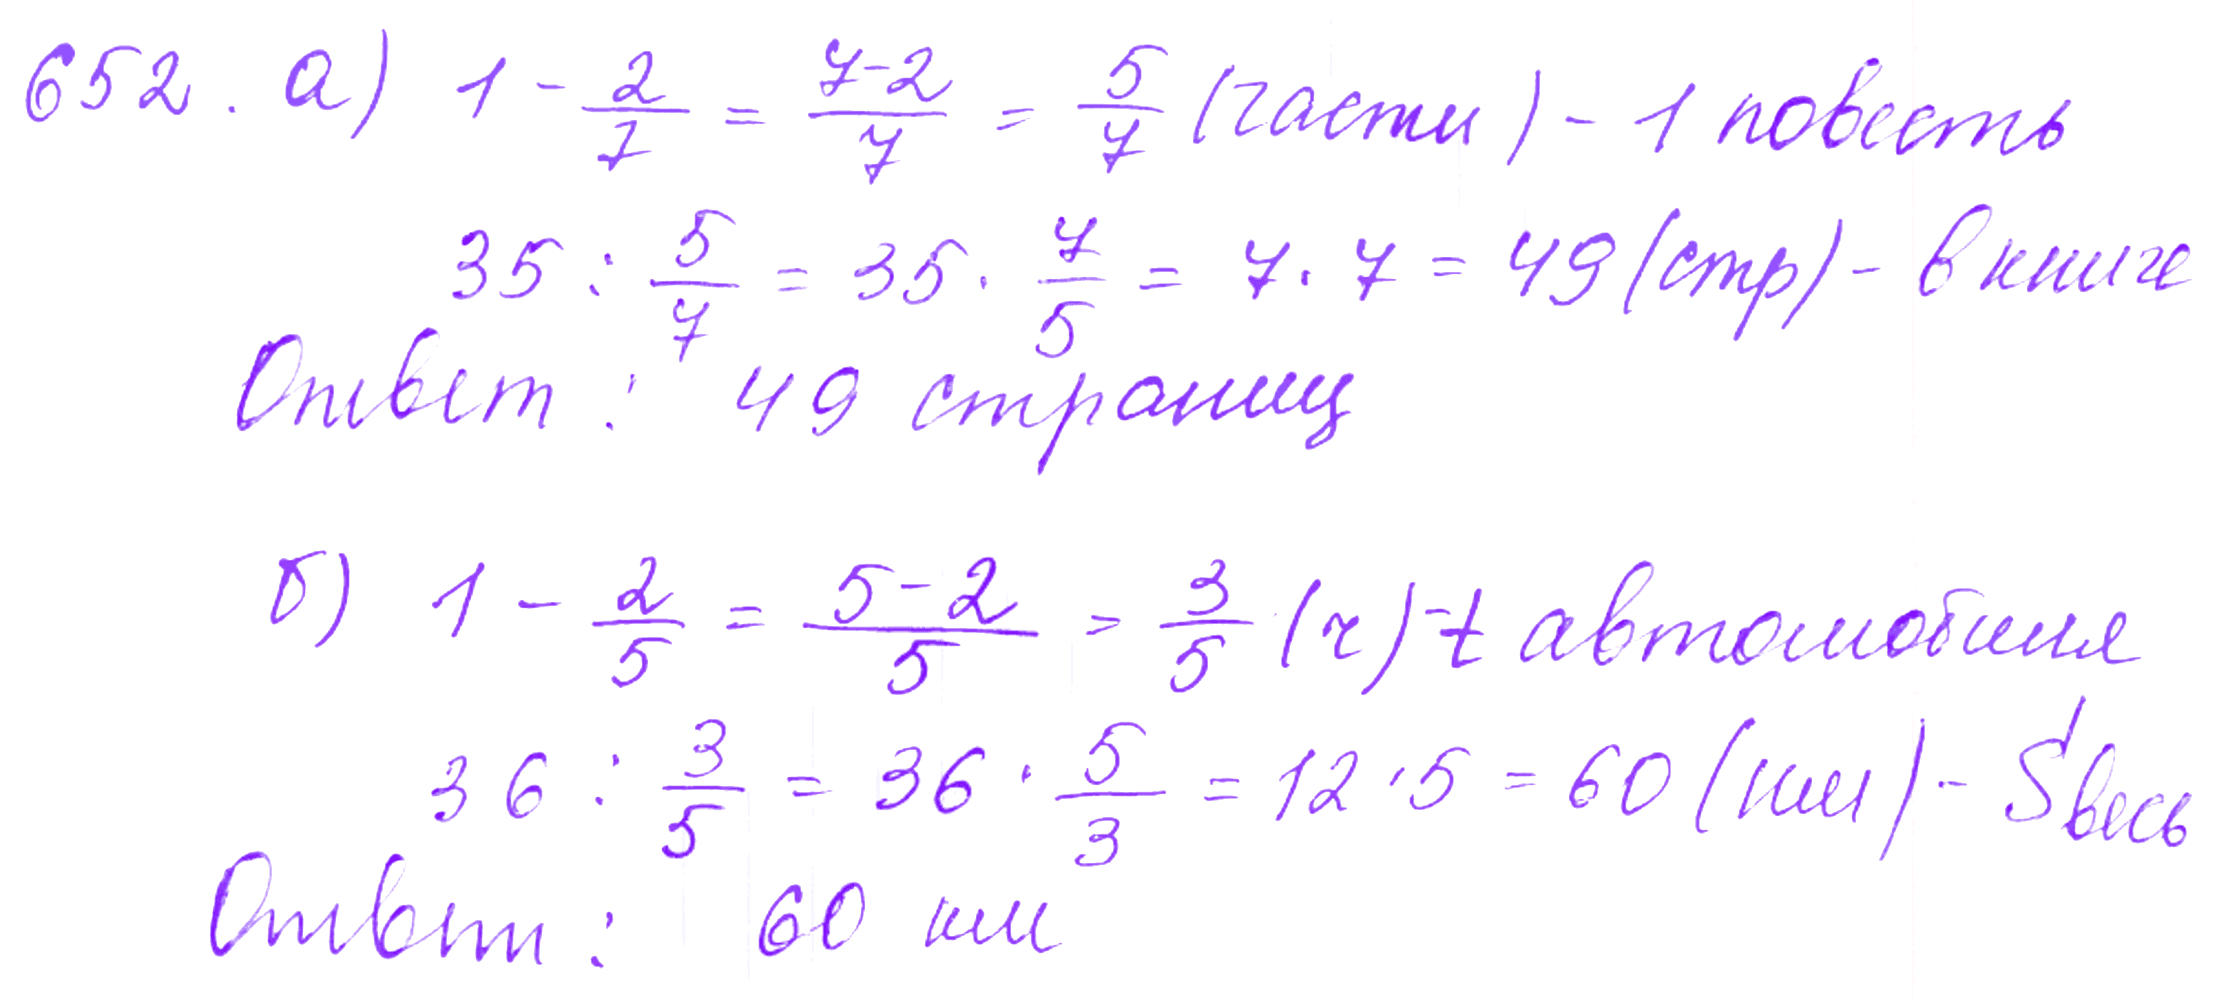 652. а) 1 - 2/7 = (7-2)/7 = 5/7 (части) - 1 повесть
35 : 5/7 = 35 · 7/5 = 7 · 7 = 49 (стр) - в книге
Ответ : 49 страниц
б) 1 - 2/5 = (5-2)/5 = 3/5 (ч) - t автомобиля
36 : 3/5 = 36 · 5/3 = 12 · 5 = 60 (км) - S весь
Ответ : 60 км